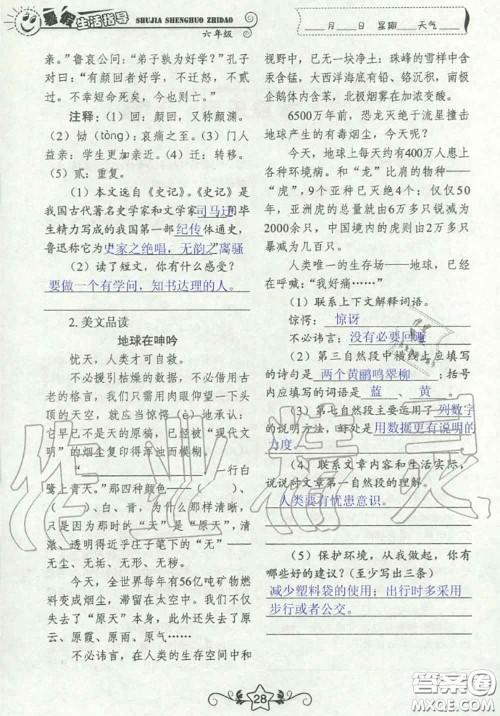 暑假生活指导
SHUJIA SHENGHUO ZHIDAO
六年级
月 日 星期 天气
亲。”鲁哀公问：“弟子孰为好学？”孔子
对曰：“有颜回者好学，不迁怒，不贰
过。不幸短命死矣，今也则亡。”
注释：（1）回：颜回，又称颜渊。
（2）恸（tòng）：哀痛之至。（3）门人
益亲：学生更加亲近。（4）迁：转移。
（5）贰：重复。
（1）本文选自《史记》。《史记》是
我国古代著名史学家和文学家司马迁用毕
生精力写成的我国第一部纪传体通史，
鲁迅称它为“史家之绝唱，无韵之离骚”
（2）读了短文，你有什么感受？
要做一个有学问，知书达理的人。
2. 美文品读
地球在呻吟
忧天，人类才可自救。
不必援引枯燥的数据，不必借用古
老的格言，我们只需用肉眼仰望一下头
顶的天空，就应当惊愕（è）地承认：
它早已不是天的原稿，已经被“现代文
明”的烟尘复印得浑浊而模糊。
“ ，一行白
鹭上青天。”那四种颜色（ ）、
（ ）、白、青，为什么那样清晰，
只是因为那时的“天”是“原天”，清
澈、透明得近乎庄子笔下的“无”——
无尘、无垢、无形、无秽。
今天，全世界每年有56亿吨矿物燃
料变成烟尘，滞留在太空中。我们不仅
失去了“原天”本身，此外还失去了原
云、原霞、原雨、原气……
不必讳言，在人类的生存空间中和
视野中，已无一块净土：珠峰的雪样中含
汞含锰，大西洋海底有铅、铬沉积，南极
企鹅体内含苯，北极烟雾在加浓变酸。
6500万年前，恐龙灭绝于流星撞击
地球产生的有毒烟尘，今天呢？
今天，地球上每天约有400万人患上
各种环境病。和“龙”比肩的物种——
“虎”，9个亚种已灭绝4个；仅仅50
年，亚洲虎的总量就由6万多只锐减为
2000余只，中国境内的虎则由2万多只
暴减为几百只。
人类唯一的生存场——地球，已经
在呼喊：“我好痛……”
（1）联系上下文解释词语。
惊愕：惊讶
不必讳言：没有必要回避
（2）第三自然段中横线上应填写
的诗句是：两个黄鹂鸣翠柳；括号
内应填写的词语是蓝、黄。
（3）第七自然段主要运用了列数字
的说明方法，好处是用数据更有说明的
力度。
（4）联系文章内容和生活实际，
谈谈对文章第一自然段的理解。
人类要有忧患意识。
（5）保护环境，从我做起，你有
哪些好的建议？（至少写出三条）
减少塑料袋的使用；出行时多采用
步行或者公交。
作业精灵
28
答案圈
MXQE.COM